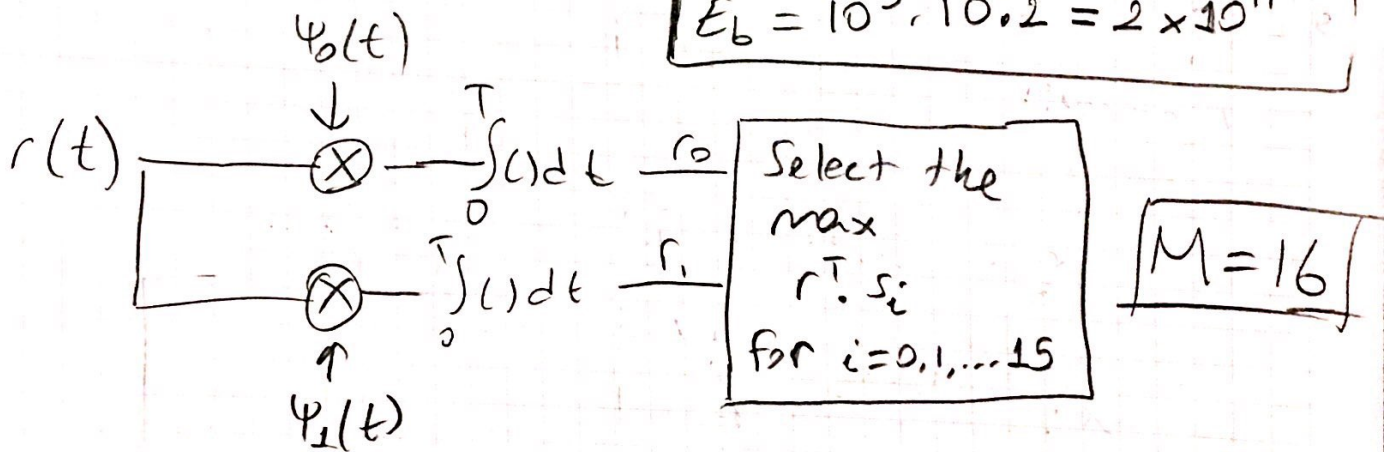 E_b = 10⁵ . 10.2 = 2 x 10
ψ₀(t)
r(t)
T
∫()dt
0
r₀
T
∫()dt
0
r₁
ψ₁(t)
Select the
max
rᵀ. sᵢ
for i=0,1,...15
M=16